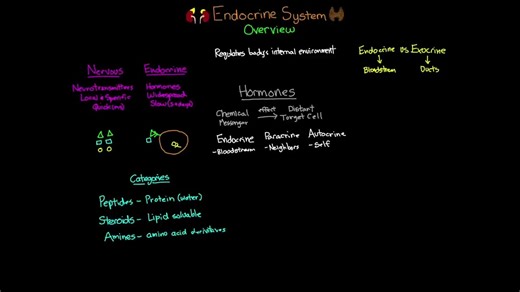 Endocrine System
Overview
Regulates body's internal environment
Endocrine vs Exocrine
Bloodstream Ducts
Nervous Endocrine
Neurotransmitters Hormones
Local + Specific Widespread
Quick (ms) Slow (s → days)
Hormones
Chemical Messenger effect Distant Target Cell
Endocrine Paracrine Autocrine
- Bloodstream - Neighbors - Self
Categories
Peptides - Protein (water)
Steroids - Lipid soluable
Amines - amino acid derivatives